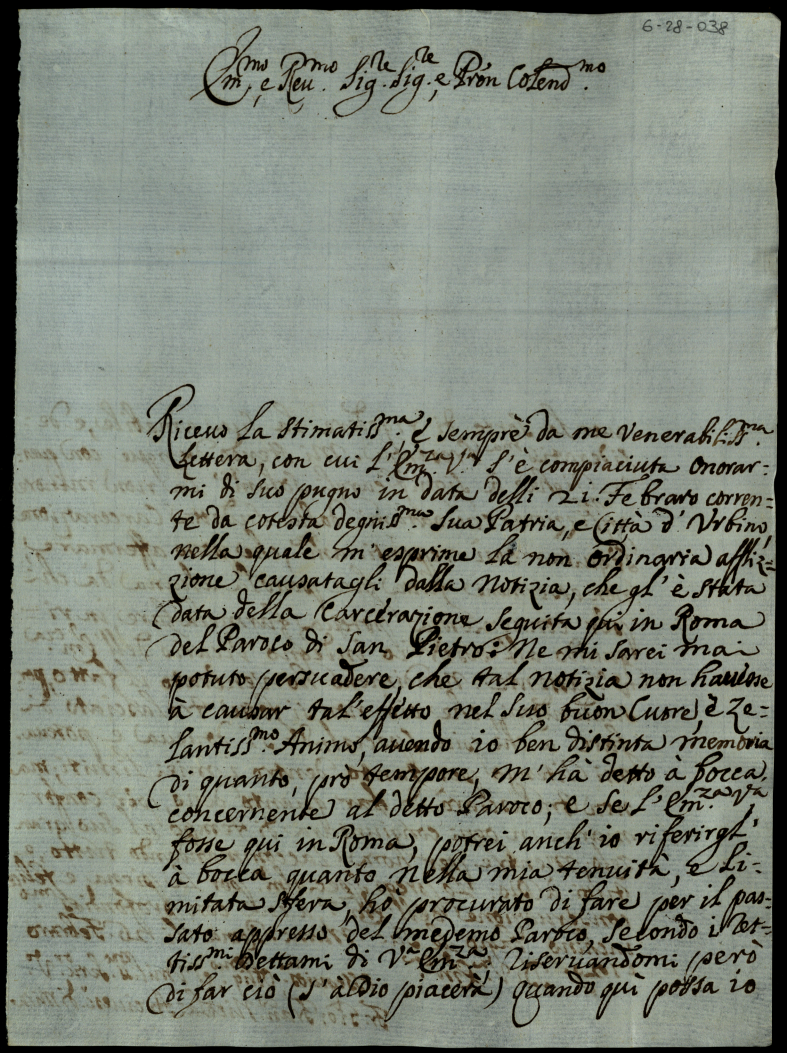 6-28-038
Em.mo, e Reu.mo Sig.re Sig.re, e Pron Colend.mo
Riceuo la stimatiss.ma, e sempre da me Venerabiliss.ma
Lettera, con cui l'Em.za V.ra s'è compiaciuta onorar=
mi di suo pugno in data delli 21. Febraro corren=
te da cotesta degniss.ma sua Patria, e Città d'Vrbino,
nella quale m'esprime la non ordinaria affliz=
zione causatagli dalla Notizia, che gl'è stata
data della Carcerazione seguita qui in Roma
del Paroco di San Pietro: Ne mi sarei mai
potuto persuadere, che tal notizia non hauesse
à causar tal'effetto nel suo buon Cuore, è Ze=
lantiss.mo Animo, auendo io ben distinta memoria
di quanto, prò tempore, m'hà detto à bocca
concernente al detto Paroco; e se l'Em.za V.ra
fosse qui in Roma, potrei anch'io riferirgl'
à bocca quanto nella mia tenuità, e Li=
mitata sfera, hò procurato di fare per il pas=
sato appresso del medemo Paroco, secondo i Ret=
tiss.mi dettami di V.ra Em.za, riseruandomi però
di far ciò (s'à Dio piacerà) quando quì possa io